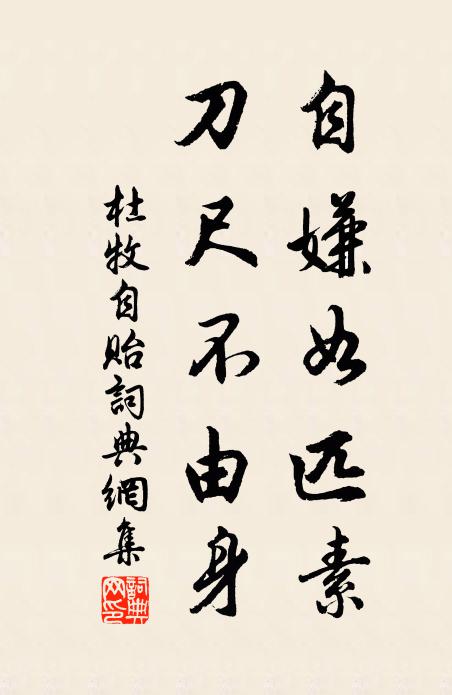 自嫌如匹素
刀尺不由身
杜牧自貽詞典網集
詞典網印